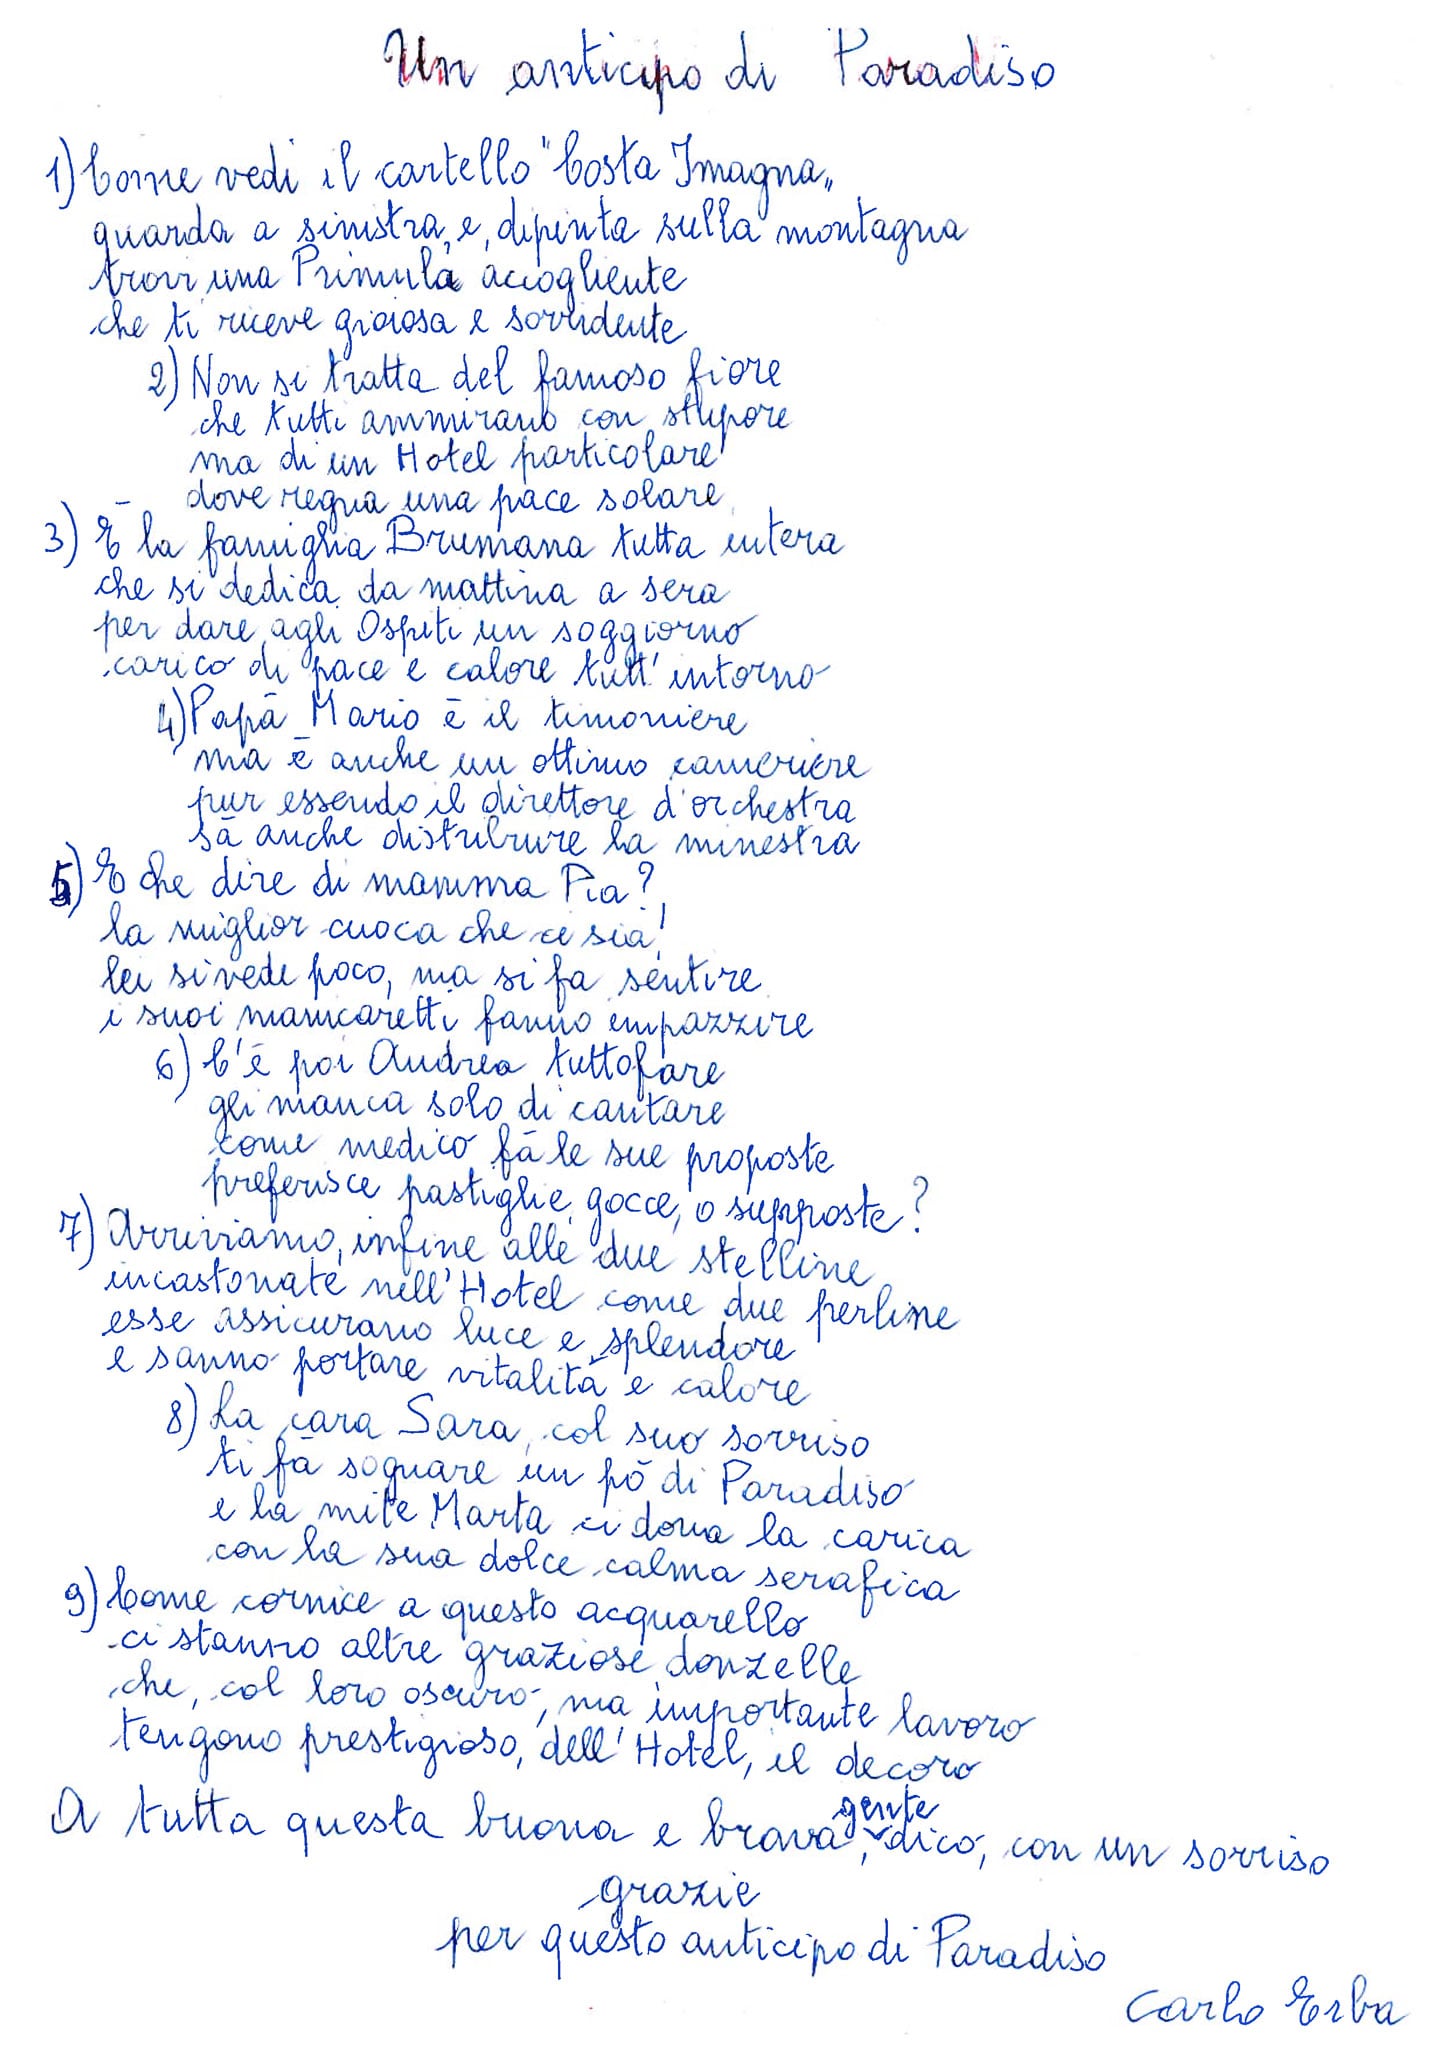 Un anticipo di Paradiso
1) Come vedi il cartello "Costa Imagna"
guarda a sinistra, e, dipinta sulla montagna
trovi una Primula accogliente
che ti riceve gioiosa e sorridente
2) Non si tratta del famoso fiore
che tutti ammirano con stupore
ma di un Hotel particolare
dove regna una pace solare
3) È la famiglia Brumana tutta intera
che si dedica da mattina a sera
per dare agli Ospiti un soggiorno
carico di pace e calore tutt'intorno
4) Papà Mario è il timoniere
ma è anche un ottimo cameriere
pur essendo il direttore d'orchestra
sà anche distribuire la minestra
5) E che dire di mamma Pia?
la miglior cuoca che ci sia!
lei si vede poco, ma si fa sentire
i suoi manicaretti fanno impazzire
6) C'è poi Andrea tuttofare
gli manca solo di cantare
come medico fà le sue proposte
preferisce pastiglie, gocce, o supposte?
7) Arriviamo, infine alle due stelline
incastonate nell'Hotel come due perline
esse assicurano luce e splendore
e sanno portare vitalità e calore
8) La cara Sara, col suo sorriso
ti fà sognare un pò di Paradiso
e la mite Marta ci dona la carica
con la sua dolce calma serafica
9) Come cornice a questo acquarello
ci stanno altre graziose donzelle
che, col loro oscuro, ma importante lavoro
tengono prestigioso, dell'Hotel, il decoro
A tutta questa buona e brava gente, dico, con un sorriso
grazie
per questo anticipo di Paradiso
Carlo Erba